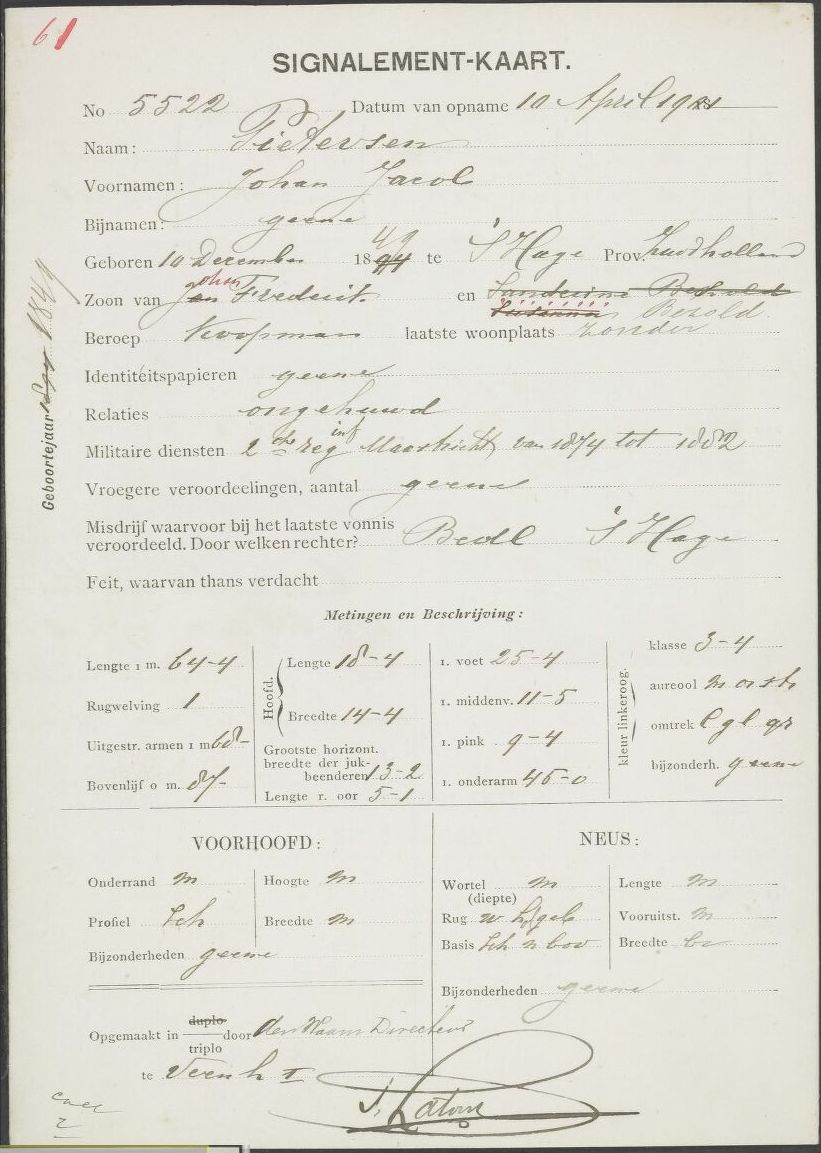 61
SIGNALEMENT-KAART.
No 5522 Datum van opname 10 April 1901
Naam: Pietersen
Voornamen: Johan Jacob
Bijnamen: geene
Geboren 10 December 1849 te 'S Hage Prov. Zuidholland
Zoon van Johan Frederik en Sanderina Bezold
Susanna Bezold
Beroep Koopman laatste woonplaats zonder
Identiteitspapieren geene
Relaties ongehuwd
Militaire diensten 2de reg inf Maastricht van 1874 tot 1882
Vroegere veroordeelingen, aantal geene
Misdrijf waarvoor bij het laatste vonnis
veroordeeld. Door welken rechter? Bedl 'S Hage
Feit, waarvan thans verdacht
Geboortejaar 1849
Metingen en Beschrijving:
Lengte 1 m. 64-4
Rugwelving 1
Uitgestr. armen 1 m 68-
Bovenlijf 0 m. 87-
Hoofd.
Lengte 18-4
Breedte 14-4
Grootste horizont.
breedte der juk-
beenderen 13-2
Lengte r. oor 5-1
l. voet 25-4
l. middenv. 11-5
l. pink 9-4
l. onderarm 45-0
kleur linkeroog.
klasse 3-4
aureool m or str
omtrek l gl gr
bijzonderh. geene
VOORHOOFD:
Onderrand m
Hoogte m
Profiel sch
Breedte m
Bijzonderheden geene
NEUS:
Wortel m
(diepte)
Lengte m
Rug w
Vooruitst. m
Basis sch n bov
Breedte br
Bijzonderheden geene
Opgemaakt in duplo
triplo
door den Waarn Directeur
te Veenh I